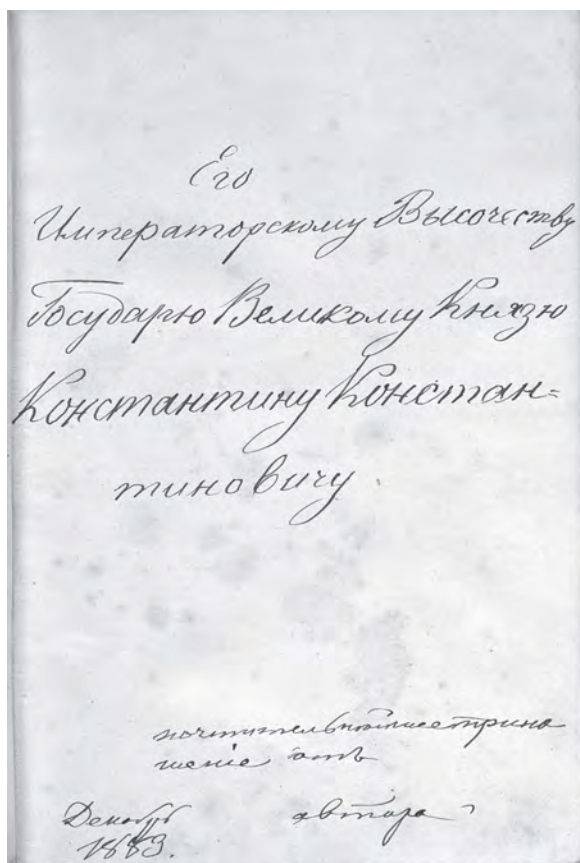 Его
Императорскому Высочеству
Государю Великому Князю
Константину Констан=
тиновичу
почтительнѣйшее прино
шеніе отъ
автора
Декабрь
1883.